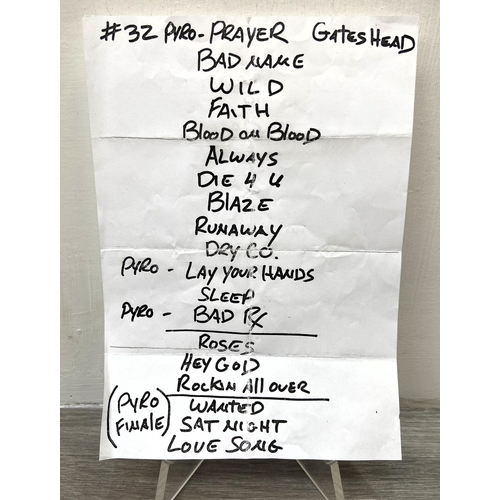 #32 PYRO - PRAYER GATESHEAD
BAD NAME
WILD
FAITH
BLOOD ON BLOOD
ALWAYS
DIE 4 U
BLAZE
RUNAWAY
DRY CO.
PYRO - LAY YOUR HANDS
SLEEP
PYRO - BAD RX
ROSES
HEY GOD
ROCKIN ALL OVER
(PYRO FINALE) WANTED
SAT NIGHT
LOVE SONG